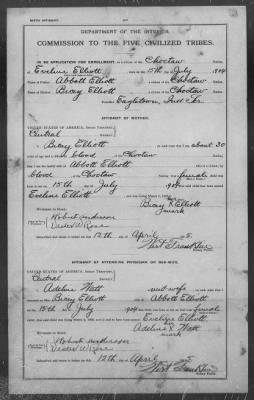 BIRTH AFFIDAVIT.
DEPARTMENT OF THE INTERIOR.
COMMISSION TO THE FIVE CIVILIZED TRIBES.
IN RE APPLICATION FOR ENROLLMENT, as a citizen of the Choctaw Nation,
of Eveline Elliott, born on the 15th day of July, 1904
Name of Father: Abbott Elliott a citizen of the Choctaw Nation.
Name of Mother: Bicey Elliott a citizen of the Choctaw Nation.
Postoffice Eagletown, Ind. Ter.
AFFIDAVIT OF MOTHER.
UNITED STATES OF AMERICA, Indian Territory,
Central District.
I, Bicey Elliott, on oath state that I am about 30
years of age and a citizen by blood, of the Choctaw Nation;
that I am the lawful wife of Abbott Elliott, who is a citizen, by
blood of the Choctaw Nation; that a female child was
born to me on 15th day of July, 1904, that said child has been named
Eveline Elliott, and is now living.
her
Bicey X Elliott
mark
Witnesses to Mark:
Robert Anderson
Vester W Rose
Subscribed and sworn to before me this 12th day of April, 1905.
Wirt Franklin
Notary Public.
AFFIDAVIT OF ATTENDING PHYSICIAN OR MID-WIFE.
UNITED STATES OF AMERICA, Indian Territory,
Central District.
I, Adeline Watt, a mid-wife, on oath state that I attended on
Mrs. Bicey Elliott, wife of Abbott Elliott
on the 15th day of July, 1904; that there was born to her on said date a female
child; that said child is now living and is said to have been named Eveline Elliott
her
Adeline X Watt
mark
Witnesses to Mark:
Robert Anderson
Vester W Rose
Subscribed and sworn to before me this 12th day of April, 1905.
Wirt Franklin
Notary Public.